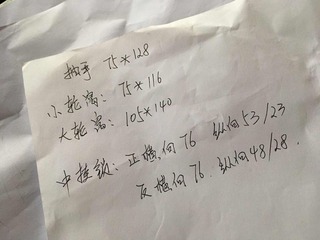 拗手 75*128
小轮涡: 75*116
大轮涡: 105*140
中挂锁: 正横向76 纵向53/23
反横向76. 纵向48/28.